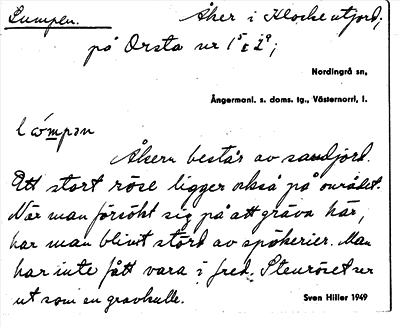 Lumpen. Åker i Klockeutjord;
på Orsta nr 1⁵ & 2⁹;
Nordingrå sn,
Ångermanl. s. doms. tg., Västernorrl. l.
Åkern består av sandjord.
Ett stort röse ligger också på området.
När man försökt sig på att gräva här,
har man blivit störd av spökerier. Man
har inte fått vara i fred. Stenröset ser
ut som en gravkulle. Sven Hiller 1949